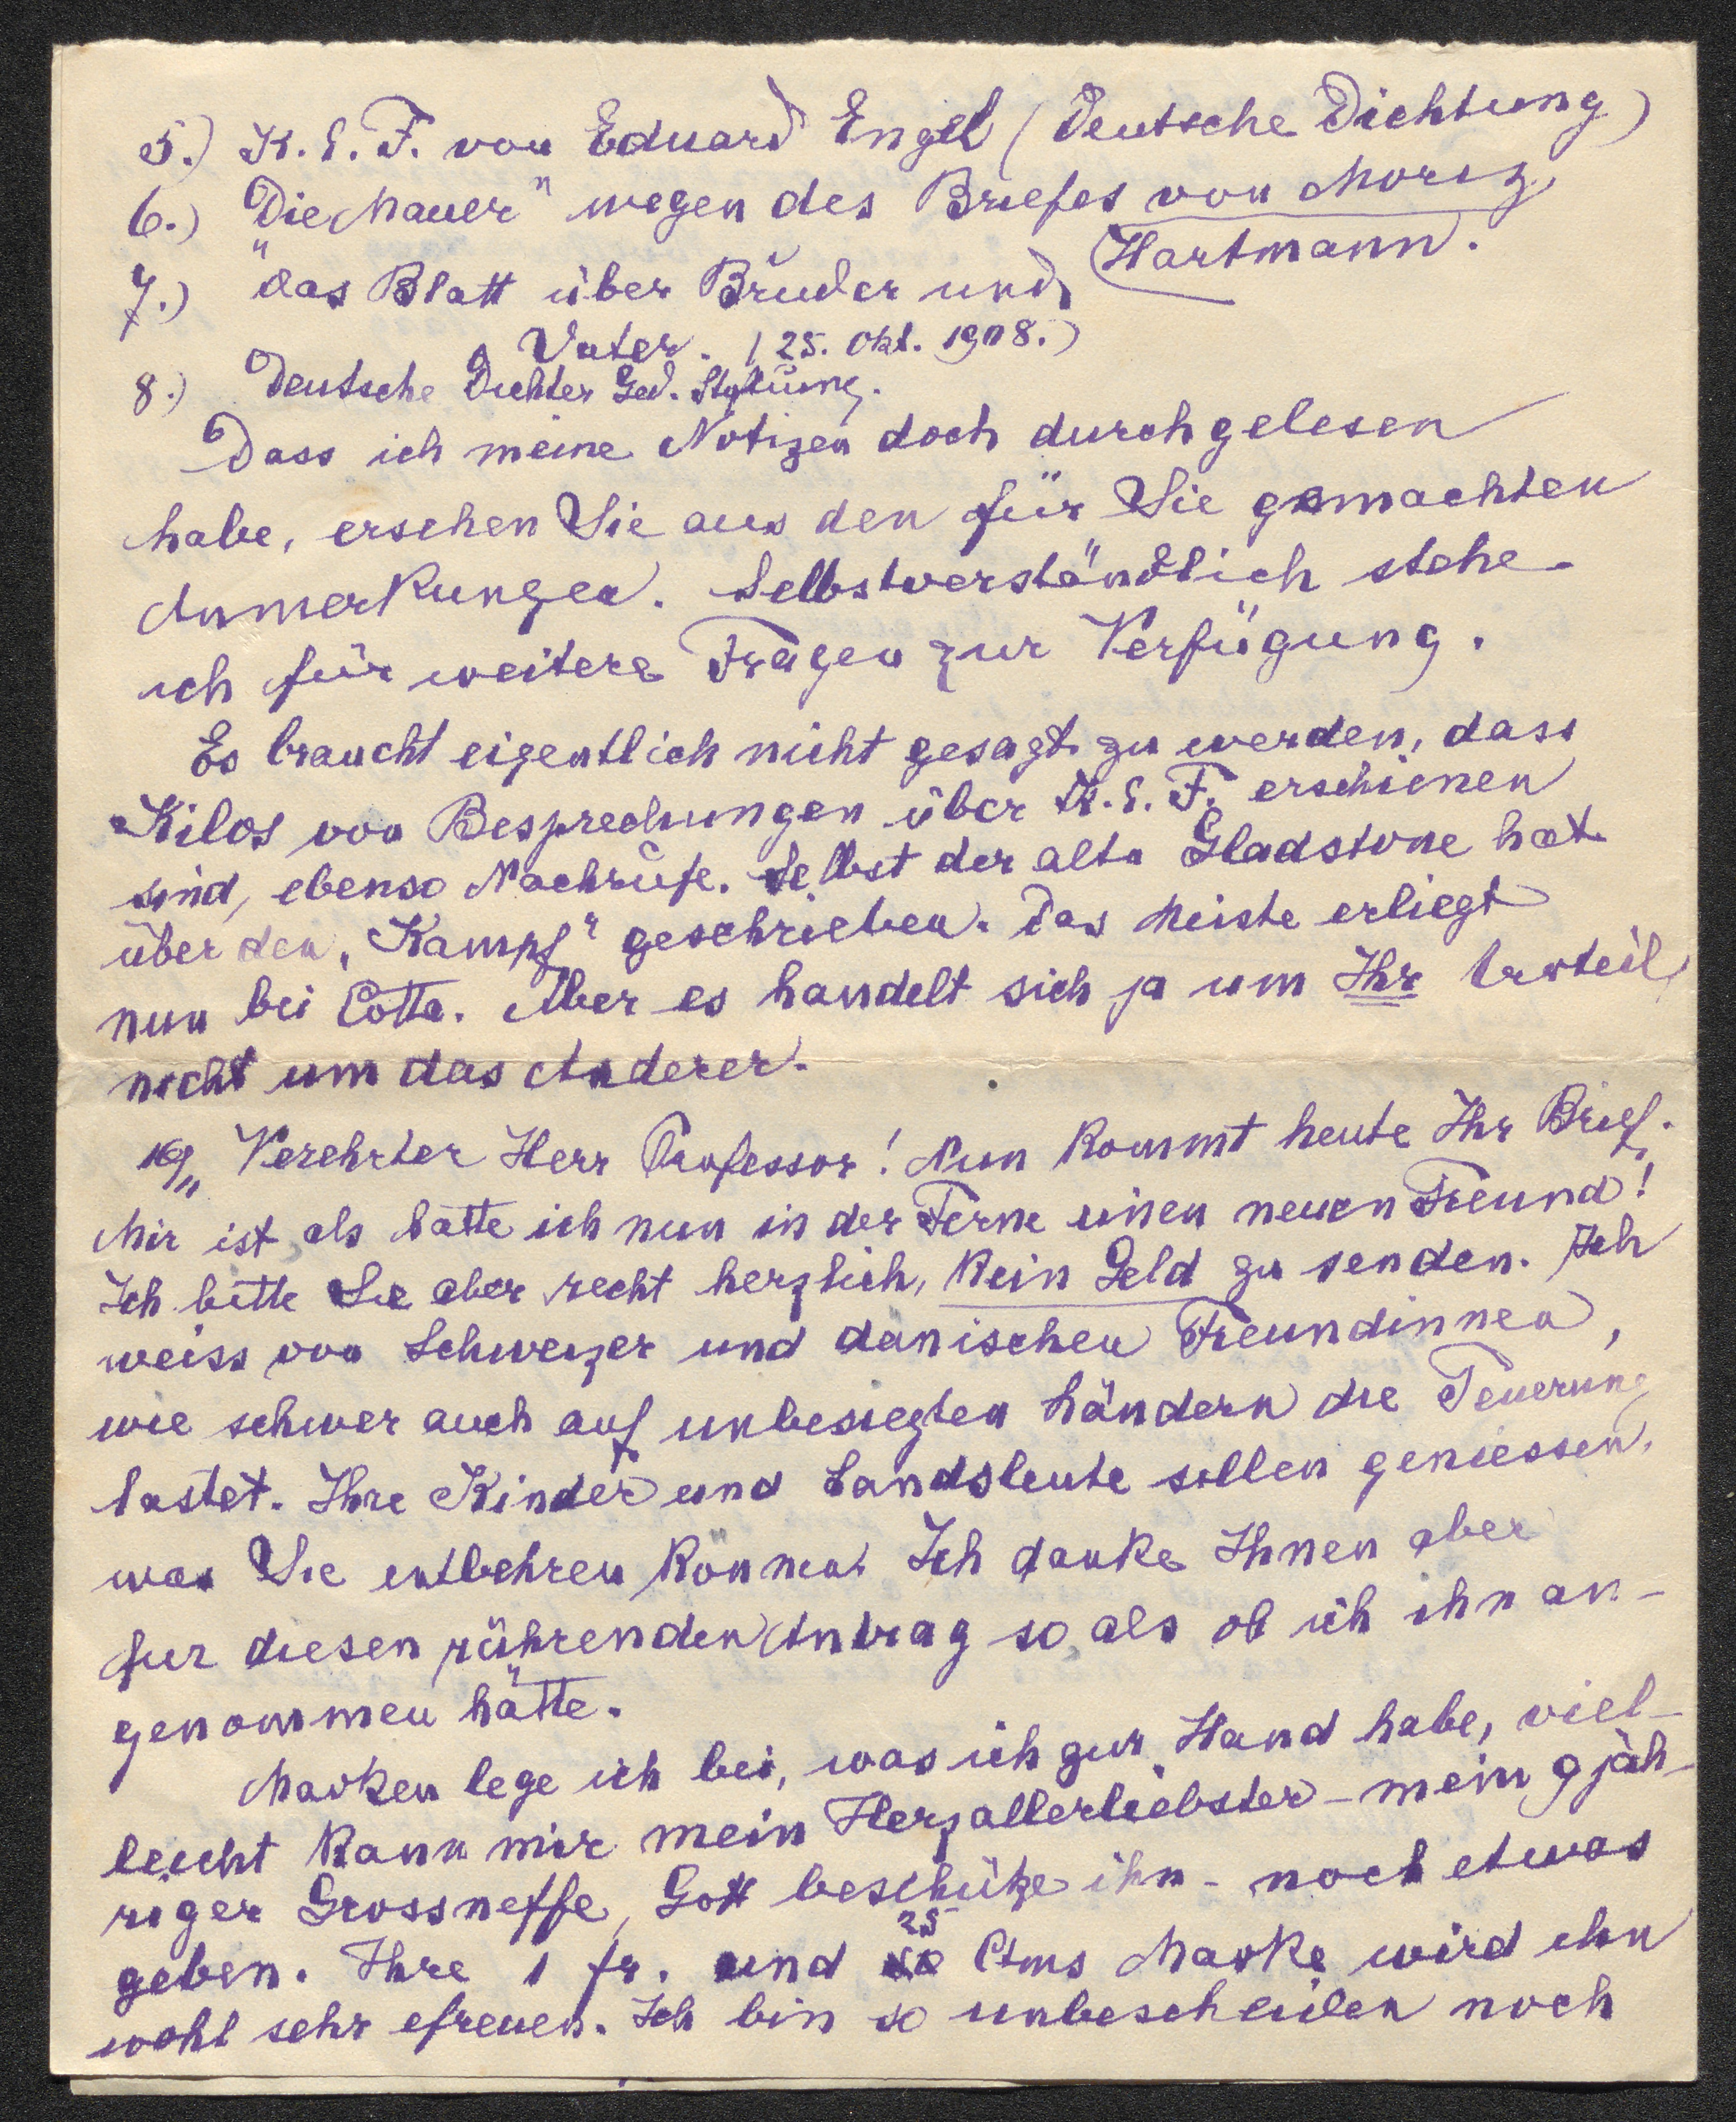 5.) K. E. F. von Eduard Engel (Deutsche Dichtung)
6.) "Die Mauer" wegen des Briefes von Moriz
Hartmann.
7.) das Blatt über Bruder und
Vater. (25. Okt. 1908.)
8.) Deutsche Dichter Ged. Stiftung.
Dass ich meine Notizen doch durchgelesen
habe, ersehen Sie aus den für Sie gemachten
Anmerkungen. Selbstverständlich stehe
ich für weitere Fragen zur Verfügung.
Es braucht eigentlich nicht gesagt zu werden, dass
Kilos von Besprechungen über K. E. F. erschienen
sind, ebenso Nachrufe. Selbst der alte Gladstone hat
über den "Kampf" geschrieben. Das Meiste erliegt
nun bei Cotta. Aber es handelt sich ja um Ihr Urteil,
nicht um das Anderer.
19/II Verehrter Herr Professor! Nun kommt heute Ihr Brief.
Mir ist als hätte ich nun in der Ferne einen neuen Freund!
Ich bitte Sie aber recht herzlich, kein Geld zu senden. Ich
weiss von Schweizer und dänischen Freundinnen,
wie schwer auch auf unbesiegten Ländern die Teuerung
lastet. Ihre Kinder und Landsleute sollen geniessen,
was Sie entbehren können. Ich danke Ihnen aber
für diesen rührenden Antrag so, als ob ich ihn an-
genommen hätte.
Marken lege ich bei, was ich zur Hand habe, viel-
leicht kann mir mein Herzallerliebster – mein 9 jäh-
riger Grossneffe, Gott beschütze ihn – noch etwas
geben. Ihre 1 fr. und 25 Ctms Marke wird ihn
wohl sehr efreuen. Ich bin so unbescheiden noch